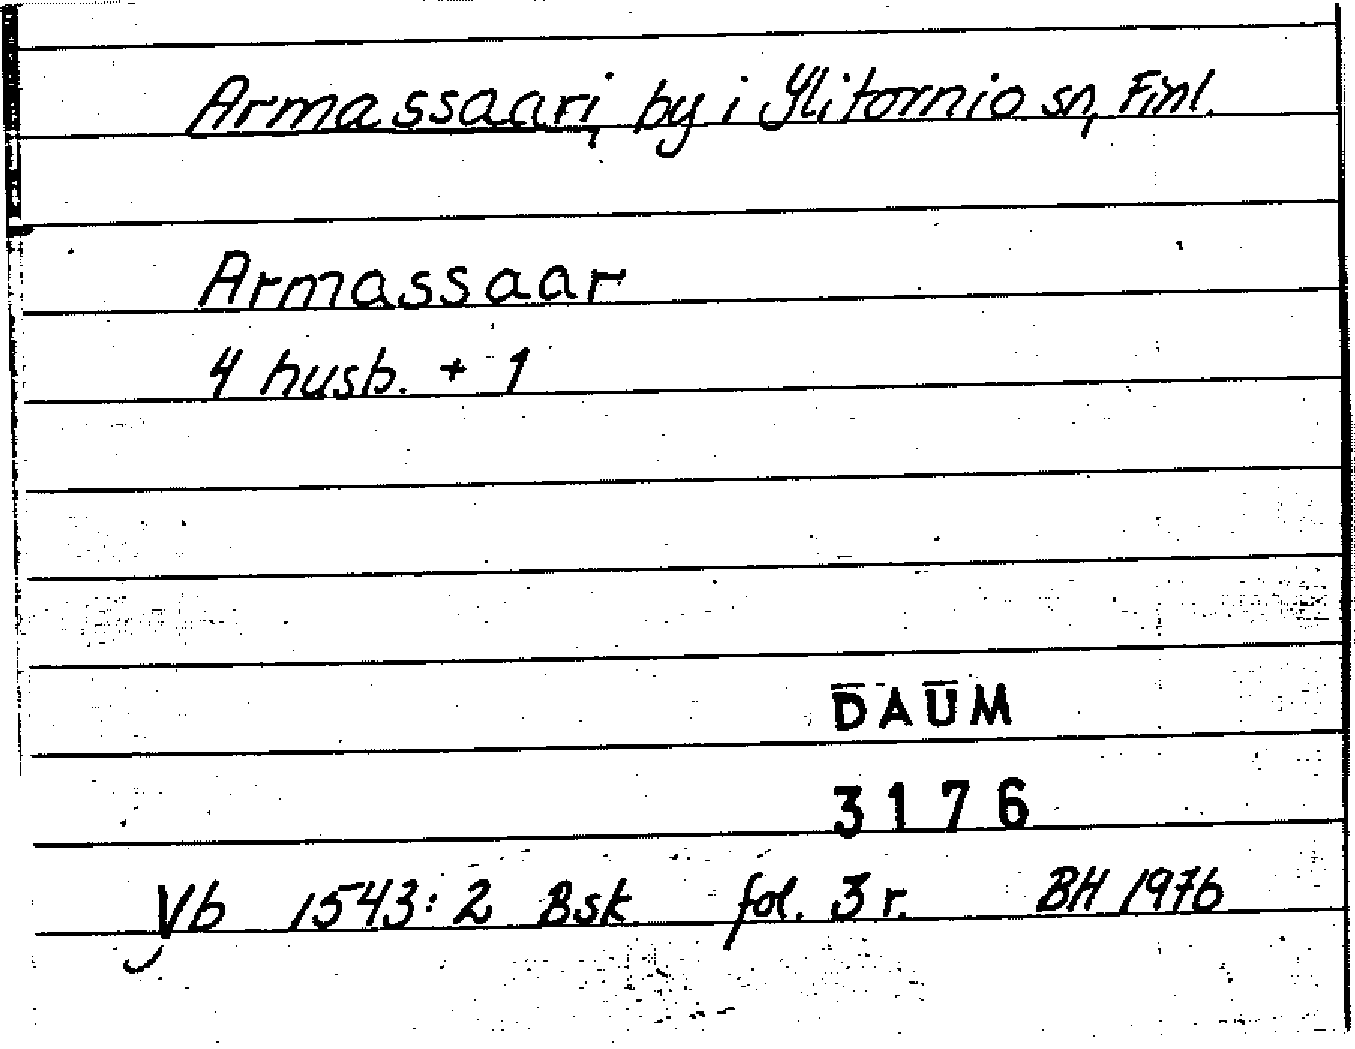 Armassaari, by i Ylitornio sn, Finl.
Armassaar
4 husb. + 1
DAUM
3176
Vb 1543:2 Bsk fol. 3 r. BH 1976